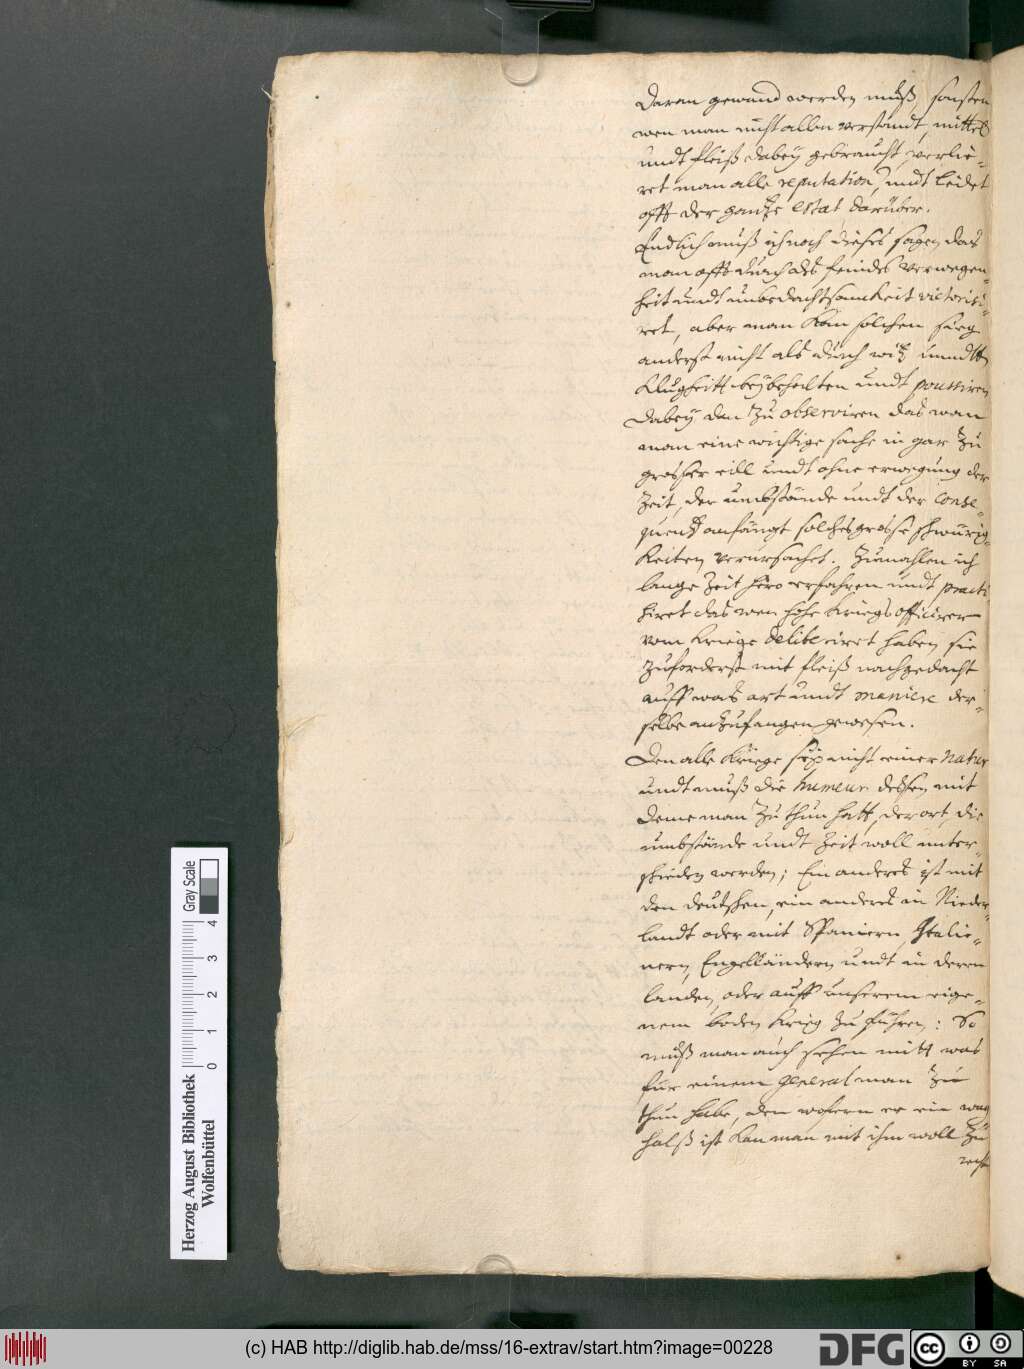 daran gewand werden muß, sonsten
wen man nicht allen verstandt, mittel
undt fleiß dabey gebraucht verlie-
ret man alle reputation, undt leidet
offt der gantze estat darüber.
Endlich muß ich noch dieses sagen, das
man offt durch des feindes verwegen-
heit undt unbedachtsamkeit victorisi-
ret, aber man kan solchen sieg
anderst nicht als durch witz unndt
klugheitt beybehalten undt poussiren
dabey dan zu observiren das wan
man eine wichtige sache in gar zu
grosser eill undt ohne erwegung der
Zeit, der umbstände undt der conse-
quentz anfängt solches grosse schwürig-
keiten verursachet. Zumahlen ich
lange Zeit hero erfahren undt practi
ziret das wen hohe Kriegs officirer
vom Kriege deliberirret haben sie
zuforderst mit fleiß nachgedacht
auff was art undt maniere der-
selbe anzufangen gewesen.
Den alle Kriege sein nicht einer natur
undt muß die humeur dessen mit
deme man zu thun hatt, der ort, die
umbstände undt Zeit woll unter-
schieden werden; Ein anders ist mit
den deutschen, ein anders in Nieder-
landt oder mit Spaniern, Italie-
nern, Engelländern undt in deren
landen, oder auff unserem eige-
nem boden Krieg zu führen: So
muß man auch sehen mitt was
für einem general man zu
thun habe, den wofern er ein wag
halß ist kan man mit ihm woll zu
recht
Herzog August Bibliothek
Wolfenbüttel
0 1 2 3 4
Gray Scale
(c) HAB http://diglib.hab.de/mss/16-extrav/start.htm?image=00228
DFG
cc
BY SA